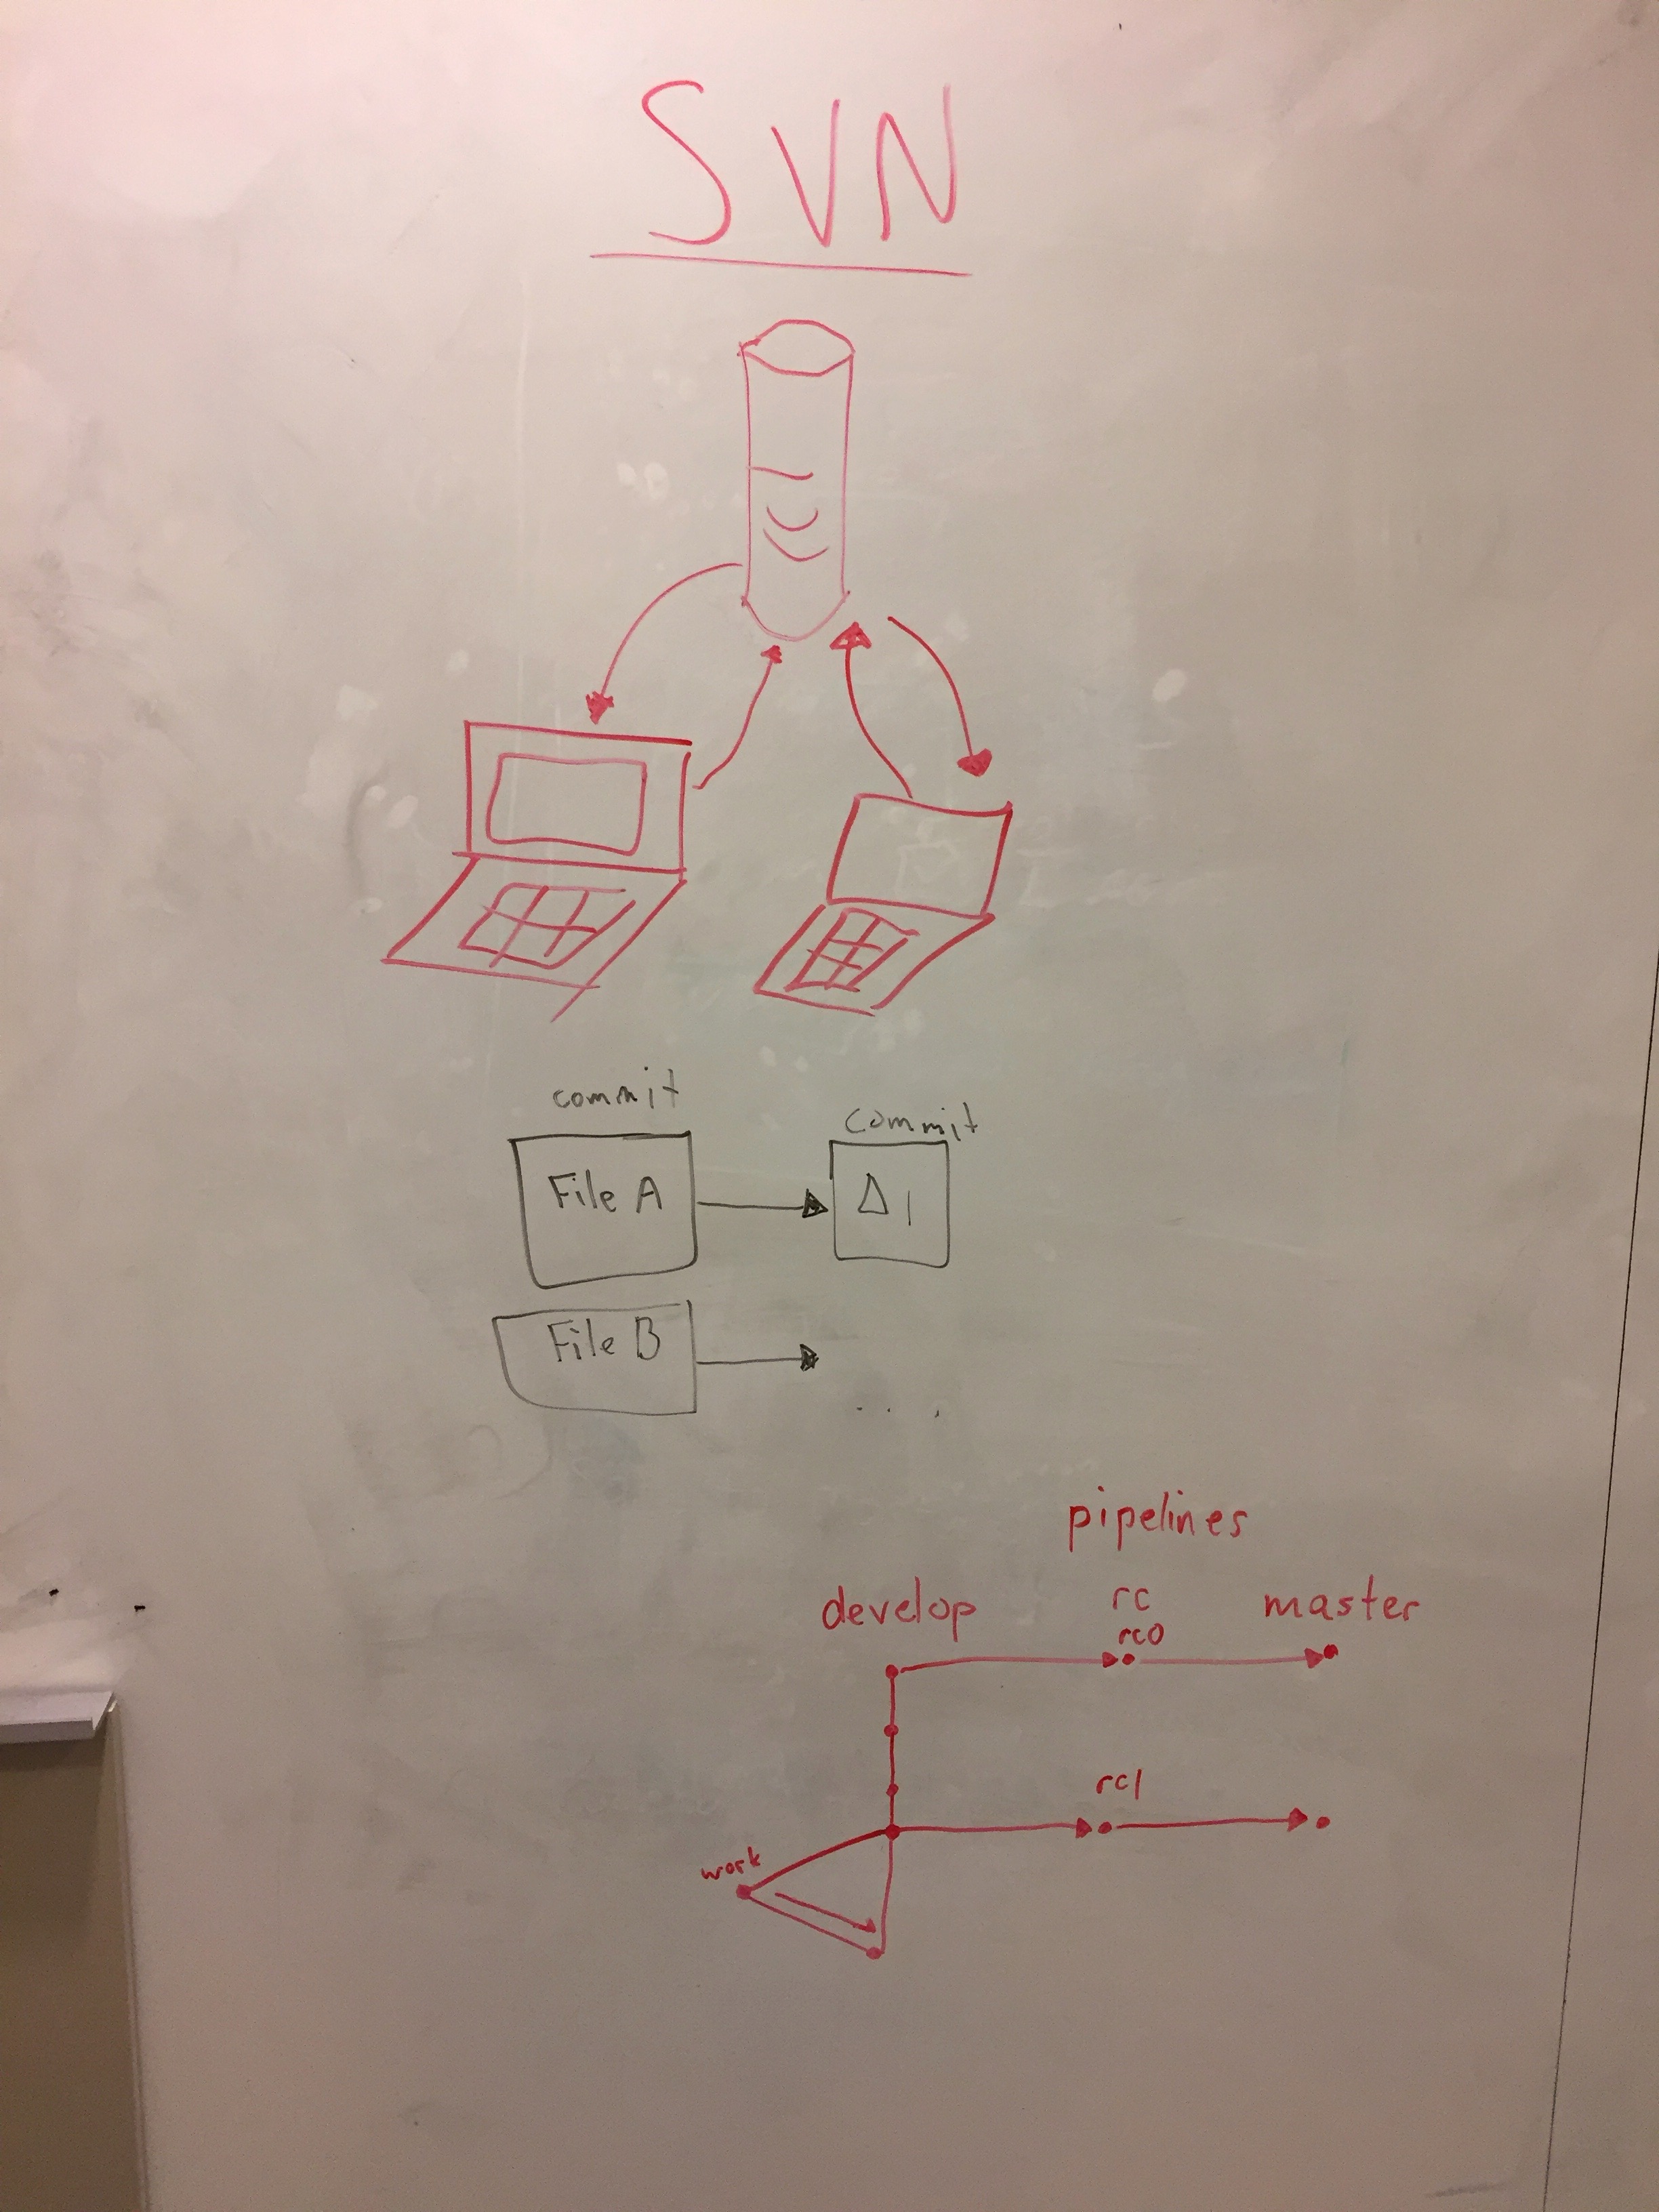 SVN
commit
commit
File A
Δ1
File B
. . .
pipelines
develop rc master
rc0
rc1
work